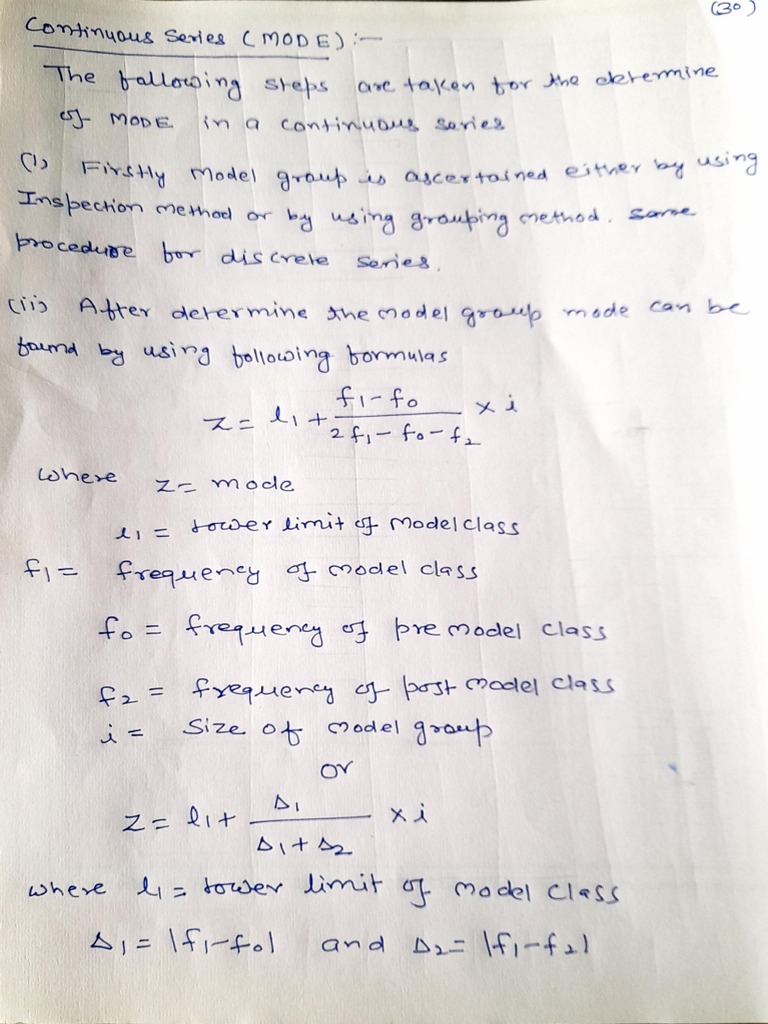 (30)
Continuous Series (MODE):-
The following steps are taken for the determine
of MODE in a continuous series
(i) Firstly model group is ascertained either by using
Inspection method or by using grouping method. same
procedure for discrete series.
(ii) After determine the model group mode can be
found by using following formulas
z = l1 + (f1 - f0) / (2f1 - f0 - f2) × i
where z = mode
l1 = lower limit of model class
f1 = frequency of model class
f0 = frequency of pre model class
f2 = frequency of post model class
i = Size of model group
or
z = l1 + Δ1 / (Δ1 + Δ2) × i
where l1 = lower limit of model class
Δ1 = |f1 - f0| and Δ2 = |f1 - f2|